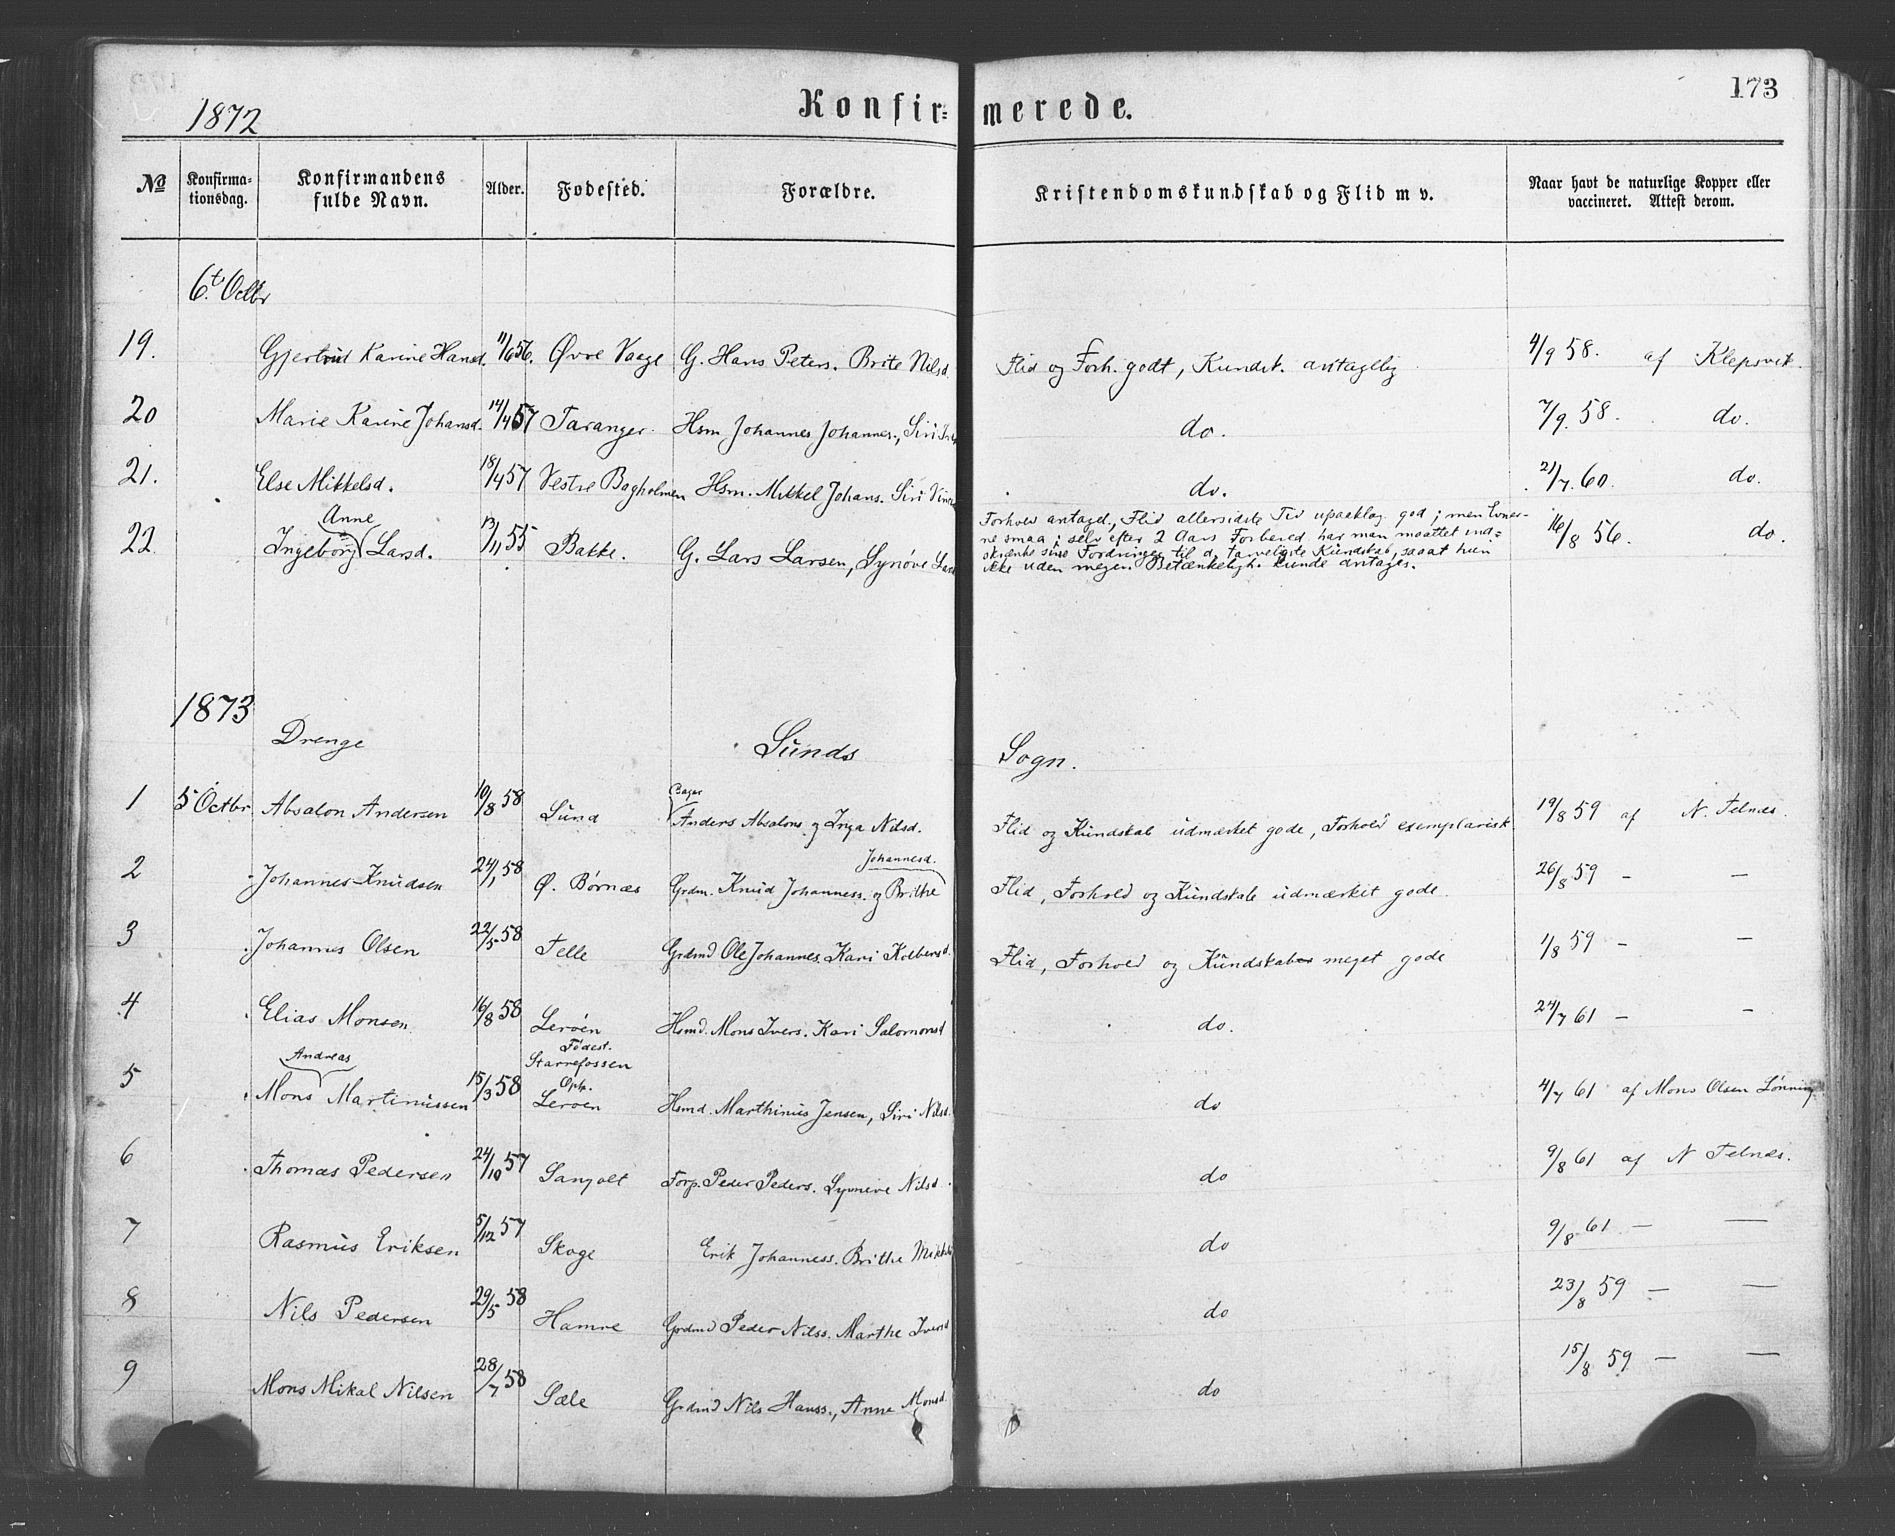 173
1872
Konfir- merede.
No
Konfirma-
tionsdag.
Konfirmandens
fulde Navn.
Alder.
Fødested.
Forældre.
Kristendomskundskab og Flid m v.
Naar havt de naturlige Kopper eller
vaccineret. Attest derom.
6t. Octbr
19. Gjertrud Karine Hansd. 11/6 56. Øvre Vaage G. Hans Peters. Brite Nilsd. Flid og Forh. godt, Kundsk. antagelig 4/9 58. af Klepsvik.
20 Marie Karine Johansd. 14/4 57 Taranger. Hsm Johannes Johannes., Siri do. 7/9. 58. do.
21. Else Mikkelsd. 18/4 57 Vestre Bagholmen Hsm. Mikkel Johans. Siri do. 21/7. 60. do.
Anne
22. Ingeborg Larsd. 13/11 55 Bakke. G. Lars Larsen, Synøve Lars 16/8 56. do.
Forhold antagel., Flid allersidste Tid upaaklag. god; men Evner-
ne smaa; selv efter 2 Aars Forbered. har man maattet ind-
skrænke sine Fordringer til d. tarveligste Kundskab, saaat hun
ikke uden megen Betænkeligh. kunde antages.
1873
Drenge
Sunds Sogn.
Bager
1 5 Octbr Absalon Andersen 10/8 58 Sund Anders Absalons. og Inga Nilsd. Flid og Kundskab udmærket gode, Forhold exemplarisk 19/8 59 af N. Telnes.
Johannesd.
2 Johannes Knudsen 24/1 58 Ø. Børnæs Grdm. Knud Johanness. og Brithe Flid, Forhold og Kundskab udmærket gode. 26/8 59 — —
3 Johannes Olsen 22/5 58 Telle Grdmd Ole Johannes. Kari Kolbensd. Flid, Forhold og Kundskaber meget gode 1/8 59 — —
4 Elias Monsen 16/8 58 Lerøen Hsmd. Mons Ivers. Kari Salomonsd do. 24/7 61 — —
Andreas
Fødest.
Starrefossen
Oph.
5 Mons Martinussen 15/3 58 Lerøen Hsmd. Marthinus Jensen, Siri Nilsd. do 4/7 61 af Mons Olsen Lønning
6 Thomas Pedersen 24/10 57 Sangolt Forp. Peder Peders. Synneve Nilsd. do 9/8 61 af N Telnæs.
7 Rasmus Eriksen 5/12 57 Skoge Erik Johanness. Brithe Mikkels do 9/8 61 — —
8 Nils Pedersen 29/5 58 Hamre Grdmd Peder Nilss. Marthe Iversd do 23/8 59 — —
9 Mons Mikal Nilsen 28/7 58 Sæle Grdmd Nils Hanss., Anne Monsd. do 15/8 59 — —